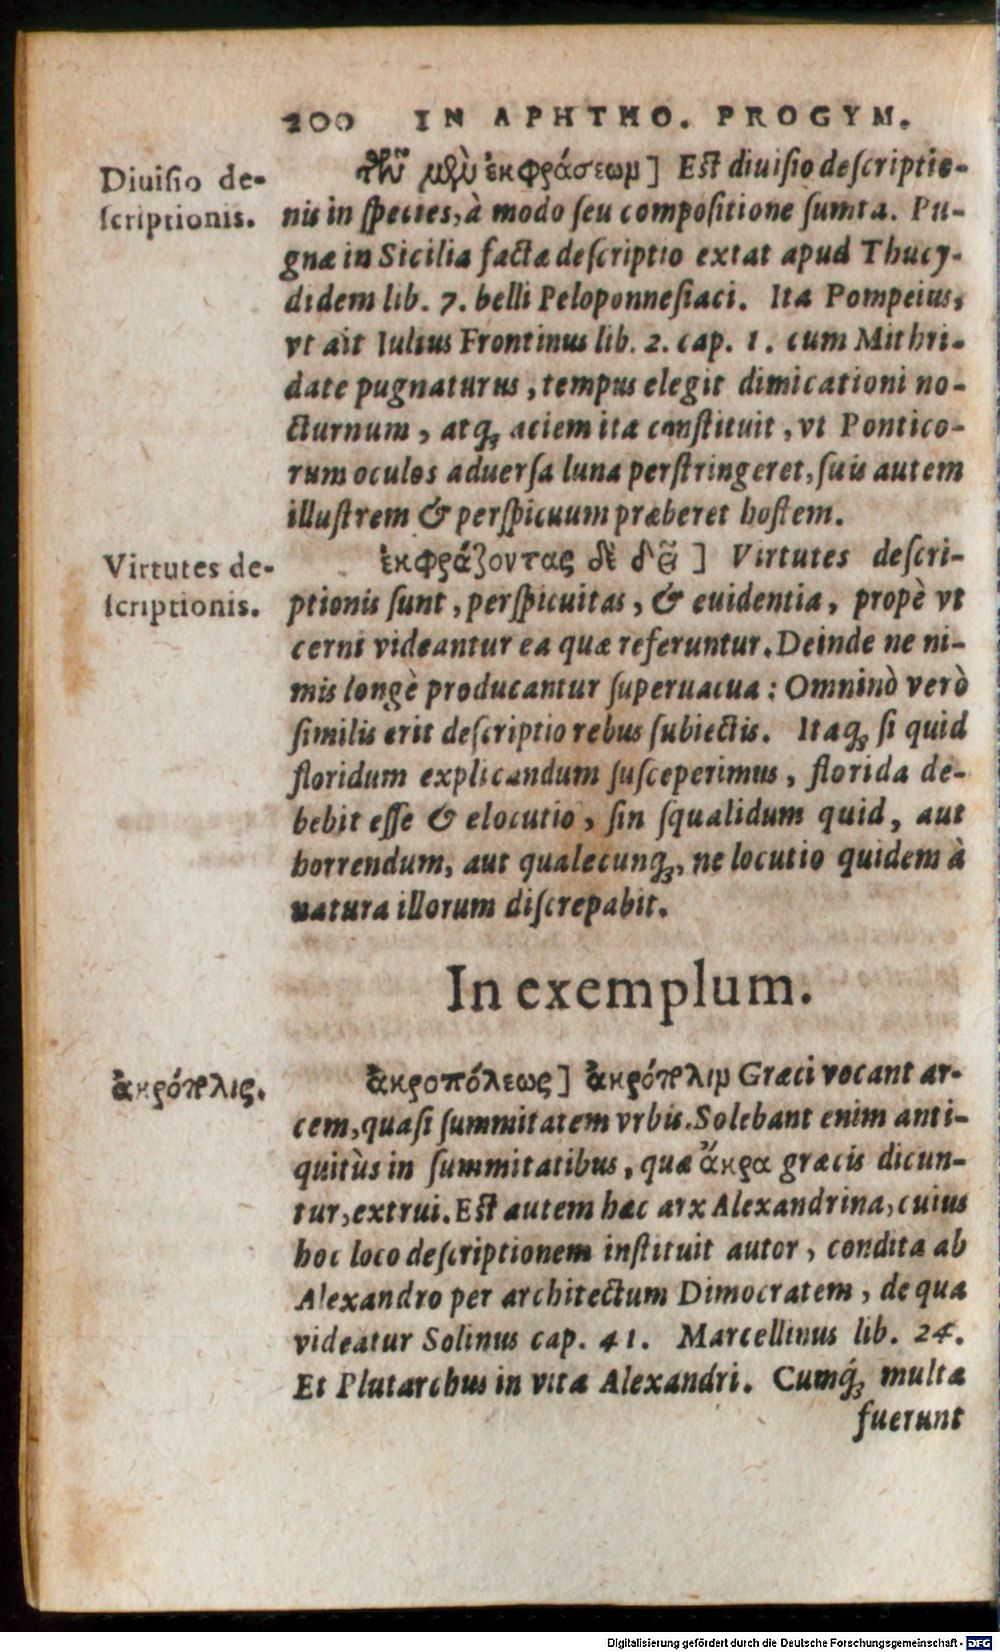 200 IN APHTHO. PROGYM.
Diuisio de-
scriptionis.
τῶν μὲν ἐκφράσεων] Est diuisio descriptio-
nis in species, à modo seu compositione sumta. Pu-
gnæ in Sicilia factæ descriptio extat apud Thucy-
didem lib. 7. belli Peloponnesiaci. Ita Pompeius,
vt ait Iulius Frontinus lib. 2. cap. 1. cum Mithri-
date pugnaturus, tempus elegit dimicationi no-
cturnum, atq; aciem ita constituit, vt Pontico-
rum oculos aduersa luna perstringeret, suis autem
illustrem & perspicuum præberet hostem.
Virtutes de-
scriptionis.
ἐκφράζοντας δὲ δεῖ] Virtutes descri-
ptionis sunt, perspicuitas, & euidentia, propè vt
cerni videantur ea quæ referuntur. Deinde ne ni-
mis longè producantur superuacua: Omninò verò
similis erit descriptio rebus subiectis. Itaq; si quid
floridum explicandum susceperimus, florida de-
bebit esse & elocutio, sin squalidum quid, aut
horrendum, aut qualecunq;, ne locutio quidem à
natura illorum discrepabit.
In exemplum.
ἀκρόπολις.
ἀκροπόλεως] ἀκρόπολιν Græci vocant ar-
cem, quasi summitatem vrbis. Solebant enim anti-
quitùs in summitatibus, quæ ἄκρα græcis dicun-
tur, extrui. Est autem hæc arx Alexandrina, cuius
hoc loco descriptionem instituit autor, condita ab
Alexandro per architectum Dimocratem, de qua
videatur Solinus cap. 41. Marcellinus lib. 24.
Et Plutarchus in vita Alexandri. Cumq́; multa
fuerunt
Digitalisierung gefördert durch die Deutsche Forschungsgemeinschaft - DFG